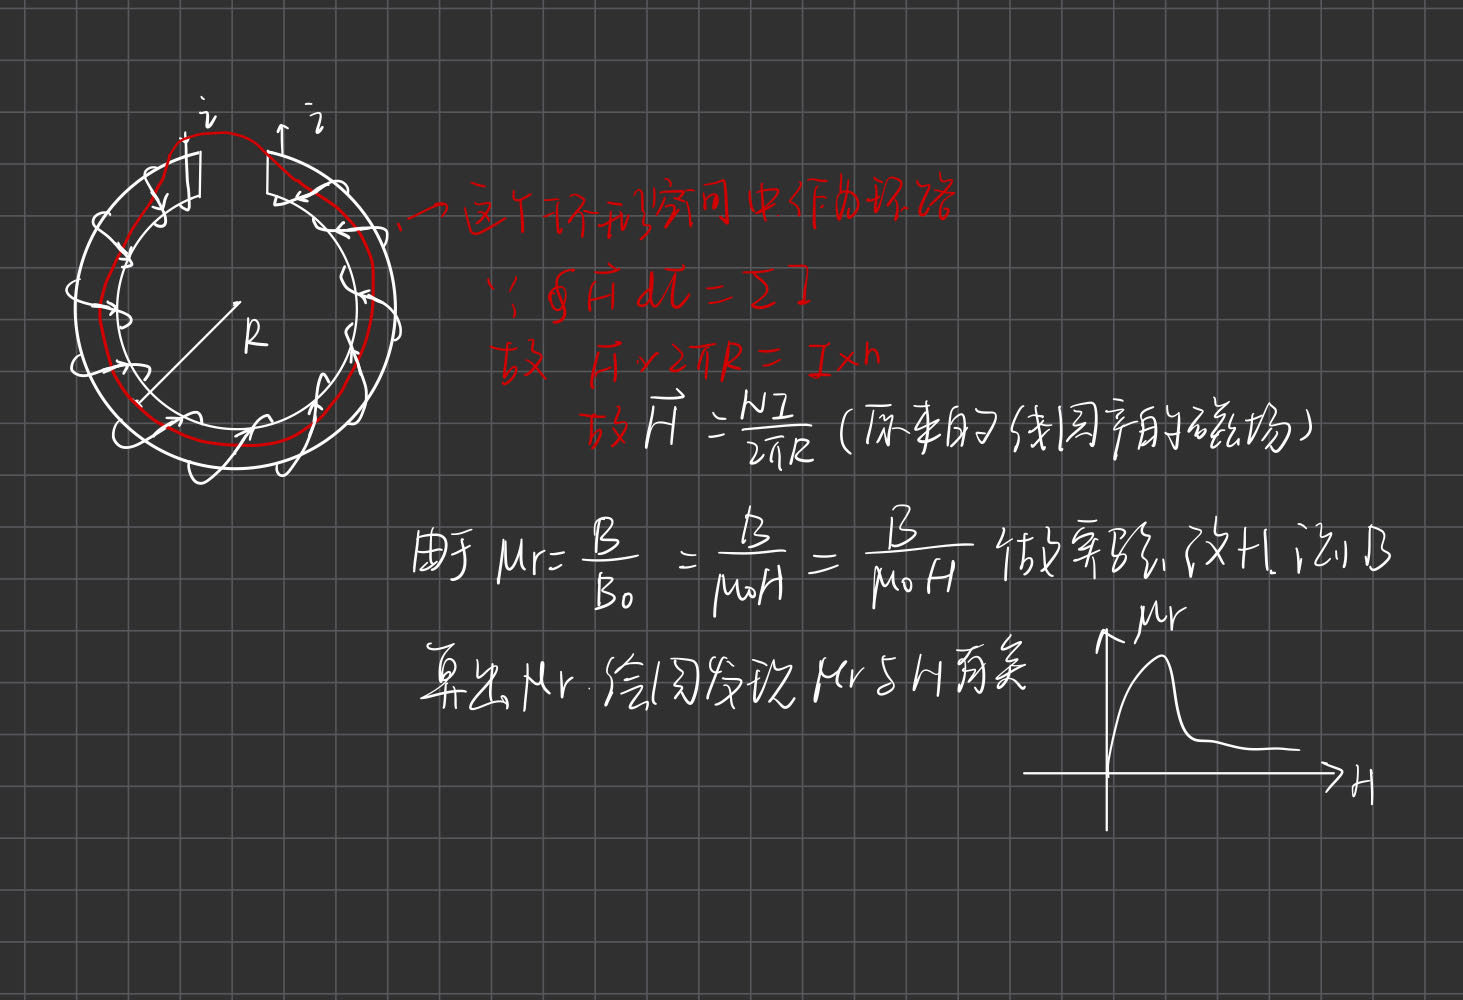 i i
R
这个环形空间中作为环路
∵ ∮ H⃗ dl⃗ = Σ I
故 H⃗ × 2πR = I × n
故 H⃗ = NI/2πR (原来的线圈产的磁场)
由于 μr = B/B₀ = B/μ₀H = B/μ₀H 做实验,改H.测B
算出μr.绘图发现μr与H有关
μr
H